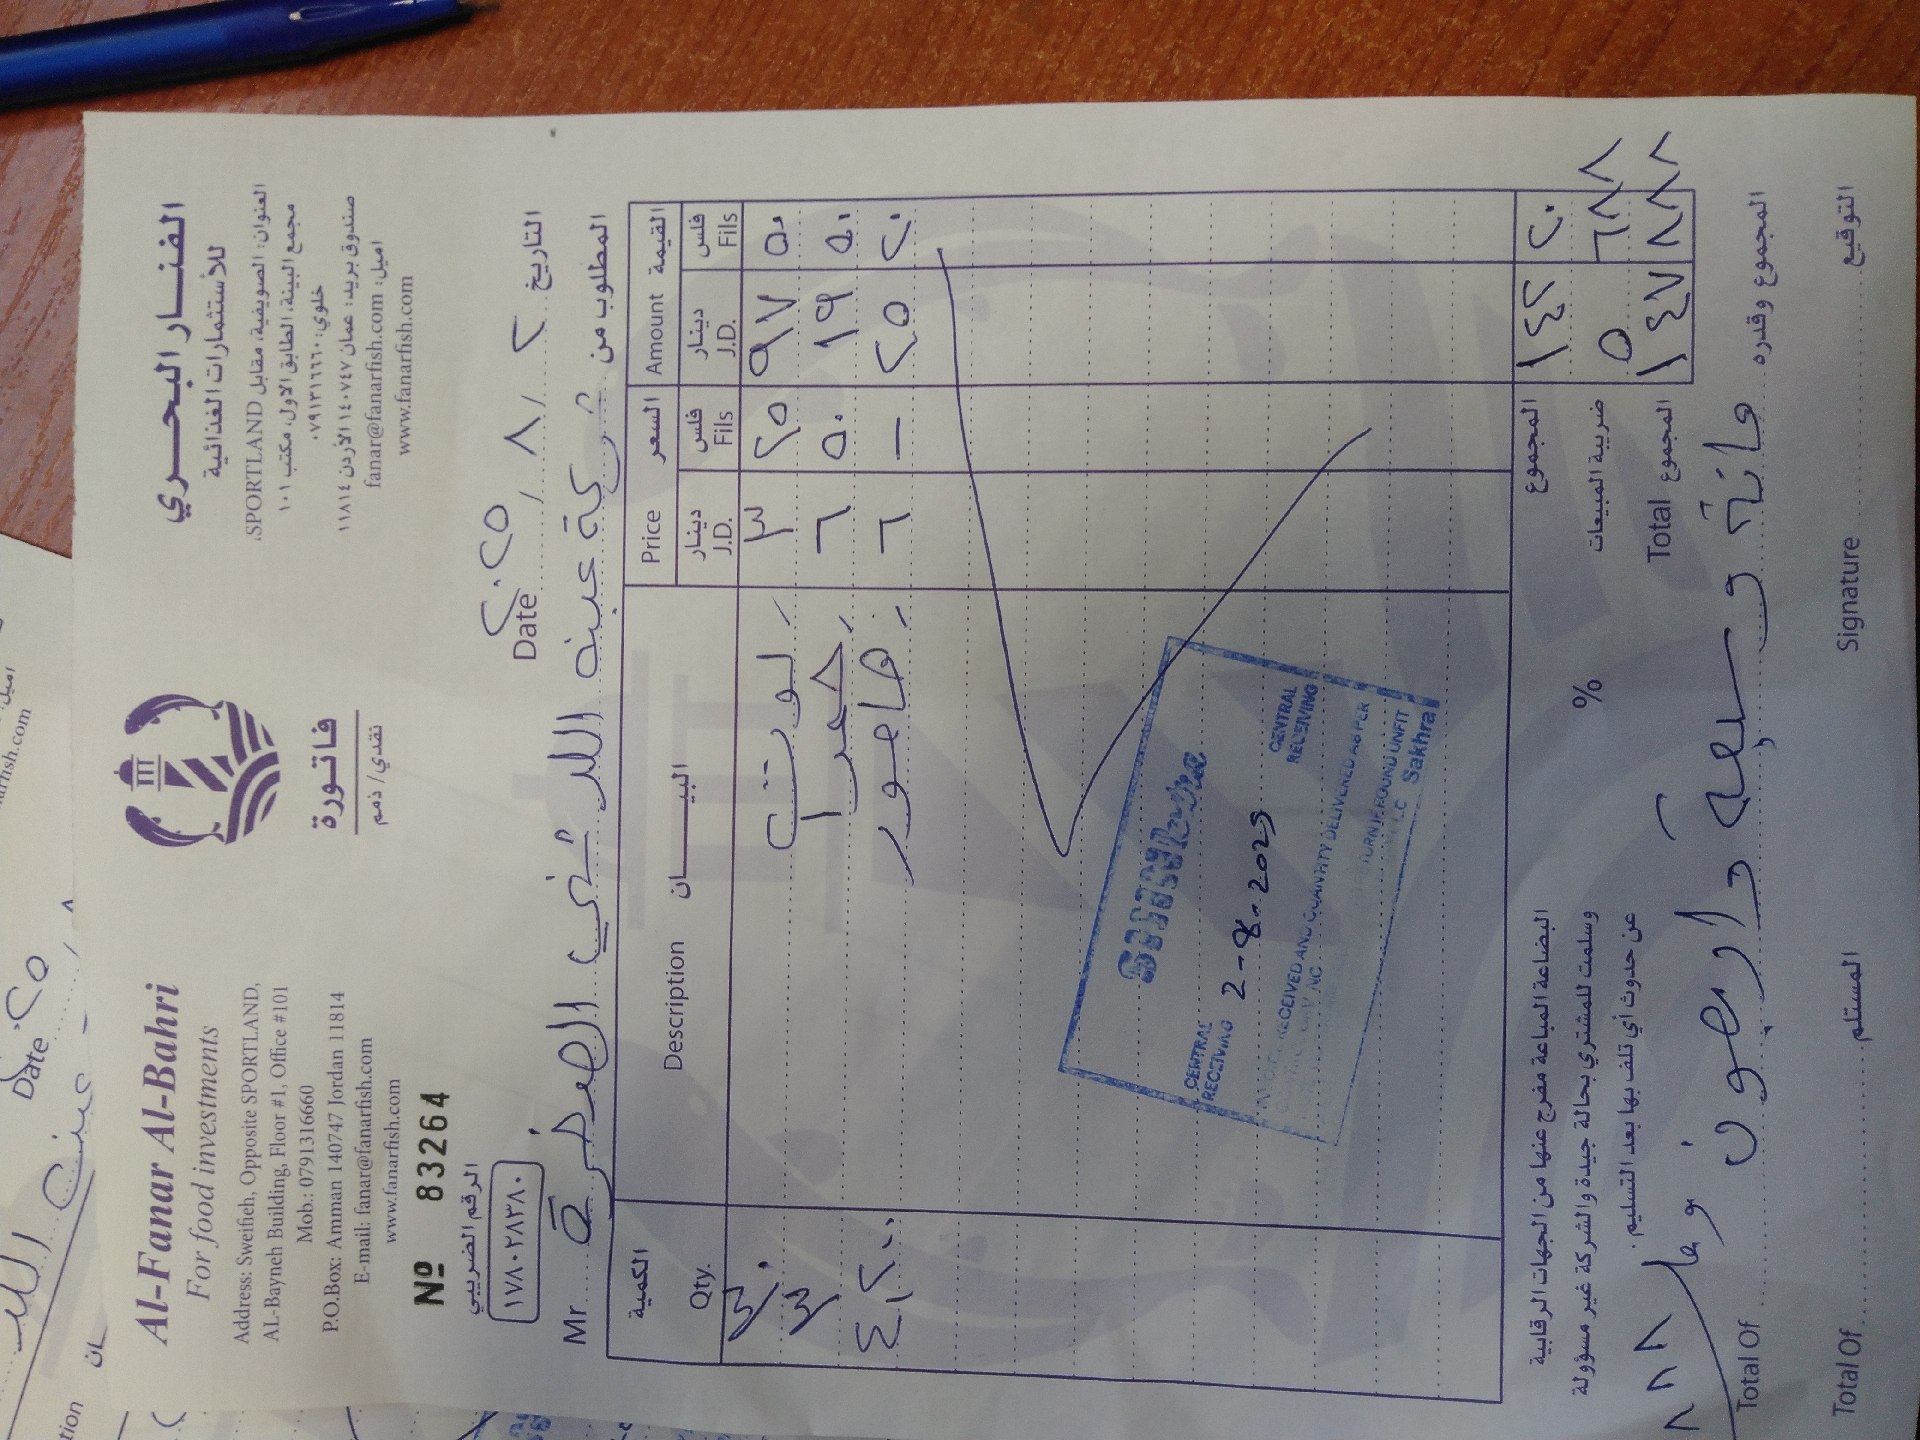 Al-Fanar Al-Bahri
For food investments
Address: Sweifieh, Opposite SPORTLAND,
AL-Bayneh Building, Floor #1, Office #101
Mob.: 0791316660
P.O.Box: Amman 140747 Jordan 11814
E-mail: fanar@fanarfish.com
www.fanarfish.com
فاتورة
نقدي / ذمم
الفنار البحري
للأستثمارات الغذائية
العنوان: الصويفية، مقابل SPORTLAND،
مجمع البينة، الطابق الاول، مكتب ١٠١
خلوي: ٠٧٩١٣١٦٦٦٠
صندوق بريد: عمان ١٤٠٧٤٧ الأردن ١١٨١٤
اميل: fanar@fanarfish.com
www.fanarfish.com
Nº 83264
الرقم الضريبي
١٧٨٠٢٨٣٨٠
Date ٢٠٢٥ / ٨ / ٢ التاريخ
Mr المطلوب من شركة عبد
الكمية Qty.
البيـــان Description
السعر Price
القيمة Amount
دينار J.D. فلس Fils دينار J.D. فلس Fils
٣٠ لوت ٣ ٢٥ ٩٧ ٥٠
٣ ٦ ٥٠ ١٩ ٥٠
٤,٢٠ هامور ٦ – ٢٥ ٢٠
CENTRAL RECEIVING
2-8-2025
CENTRAL RECEIVING
RECEIVED AND QUANTITY DELIVERED AS PER
FOUND UNFIT
Sakhra
المجموع ١٤٢ ٢٠
ضريبة المبيعات % ٥ ٦٨٨
المجموع Total ١٤٧ ٨٨٨
البضاعة المباعة مفرج عنها من الجهات الرقابية
وسلمت للمشتري بحالة جيدة والشركة غير مسؤولة
عن حدوث أي تلف بها بعد التسليم.
Total Of المجموع وقدره مائة وسبعة وأربعون و ٨٨٨
Total Of المستلم
Signature التوقيع
Date ٢٠٢٥